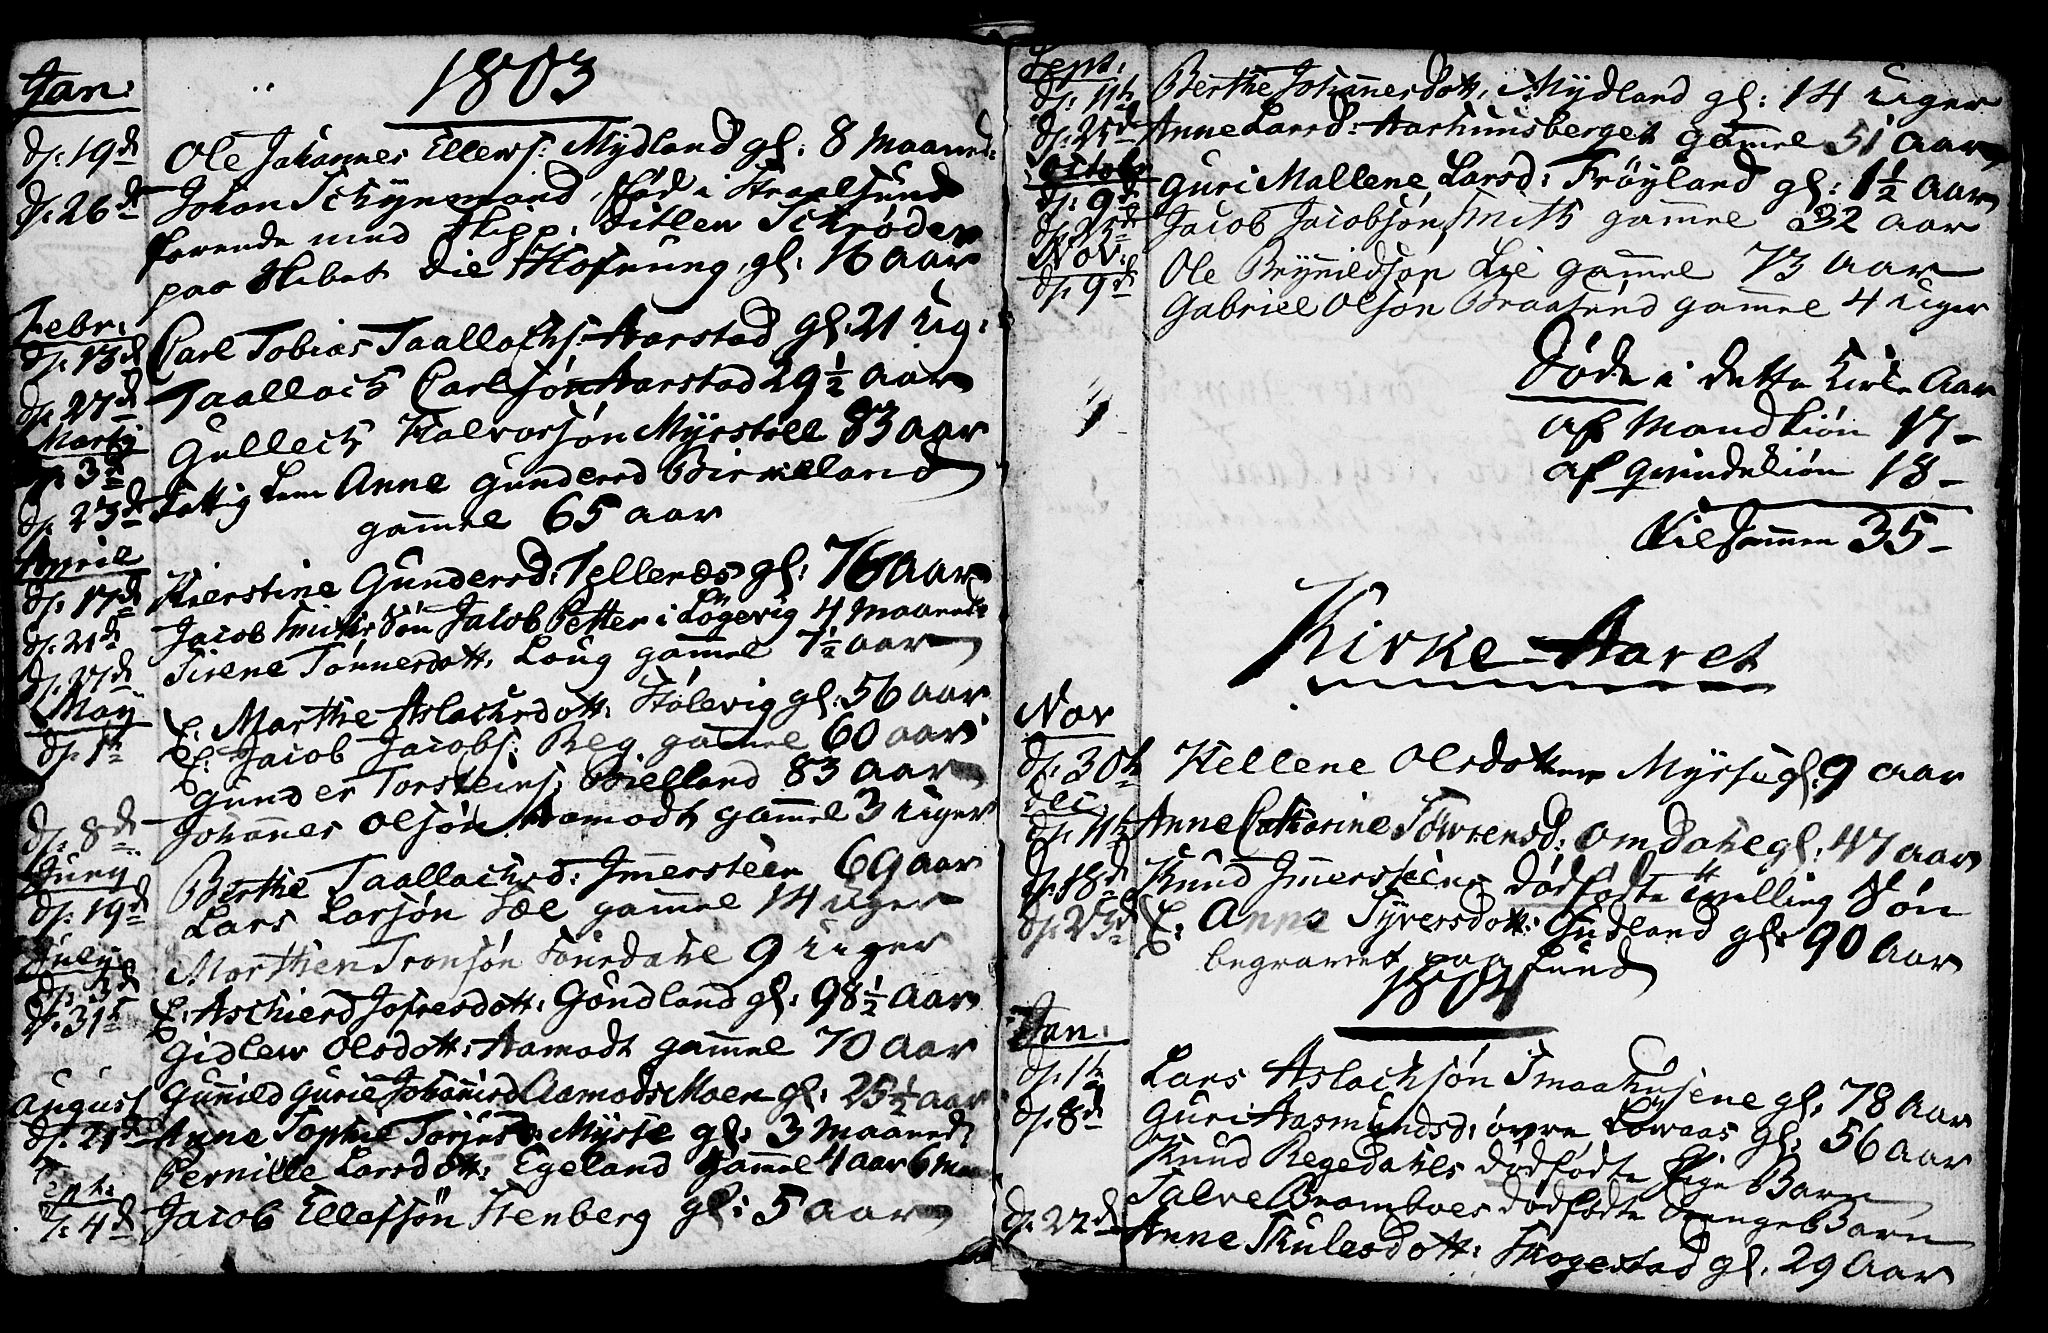 1803
Jan:
d: 19d Ole Johannes Ellews: Mydland gl: 8 Maaned:
d: 26d Johan Schynemand, fød i Straalsund
farende med Skipp: Ditlew Schrøder
paa Skibet Die Hofnung, gl: 16 Aar
Febr:
d: 13d Carl Tobias Taallachs: Aarstad gl: 21 Ug:
d: 27d Taallach Carlsøn Aarstad 29½ Aar
Marty Gullech Halvorsøn Myrstøll 83 Aar
d: 3d Fattig Lem Anne Gundersd Birkeland
d: 23d gamel 65 aar
April
d: 17d Kierstine Gundersd: Tellenes gl: 76 Aar
d: 21d Jacob Smiths Søn Jacob Petter i Løgevig 4 Maaned:
d: 27d Sirene Tønnesdott: Loug gamel 7½ aar
May E: Marthe Aslachsdott: Stølevig gl: 56 Aar
d: 1h E: Jacob Jacobs: Reg gamel 60 aar
Gunder Torsteins: Bielland 83 Aar
d: 8d Johannes Olsøn Aamodt gamel 3 Uger
Juny Berthe Taallachsd: Imersteen 69 Aar
d: 19d Lars Larsøn Sæl gamel 14 Uger
July Morthen Tronsøn Foursdahl 9 Uger
d: 3d E: Aschierd Jofresdott: Goudland gl: 98½ Aar
d: 31h Gidlew Olsdott: Aamodt gamel 70 Aar
August Gunnild Gurie Johannisd Aamodt Moen gl: 25½ aar
d: 21d Anne Sophie Torjusd: Mysse gl: 3 Maaned:
Pernille Larsdott: Egeland gamel 4 Aar 6 Maa
Sept:
d: 4d Jacob Ellefsøn Stenberg gl: 5 Aar
Sept:
d: 11h Berthe Johannesdott, Mydland gl: 14 Uger
d: 25d Anne Larsd: Aarhunsberget gamel 51 Aar
Octobr
d: 9d Guri Mallene Larsd: Frøyland gl: 1½ Aar
d: 23d Jacob Jacobsøn Smith gamel 32 Aar
Nov: Ole Brynildsøn Lie gamel 73 Aar
d: 9d Gabriel Olsøn Braatend gamel 4 Uger
Døde i dette Kirke Aar
af Mandkiøn 17-
af Qvindekiøn 18-
tilsammen 35-
Kirke-Aaret
Nov
d: 30h Hellene Olsdotter Myrse gl: 9 Aar
Dec:
d: 11h Anne Catharine Sørrensd: Omdahl gl: 47 Aar
d: 18d Knud Imersteins dødfødte tvilling Søn
d: 23d E: Anna Syversdott: Gudland gl: 90 Aar
begravet paa Lund
1804
Jan:
d: 1h Lars Aslachsøn Smaahusene gl: 78 Aar
d: 8d Guri Aasmundsd: øvre Løwaas gl: 56 Aar
Knud Regedahls dødfødte Pige Barn
Salve Bromboes dødfødte Drenge Barn
d: 22d Anne Skulesdott: Skogestad gl: 29 Aar